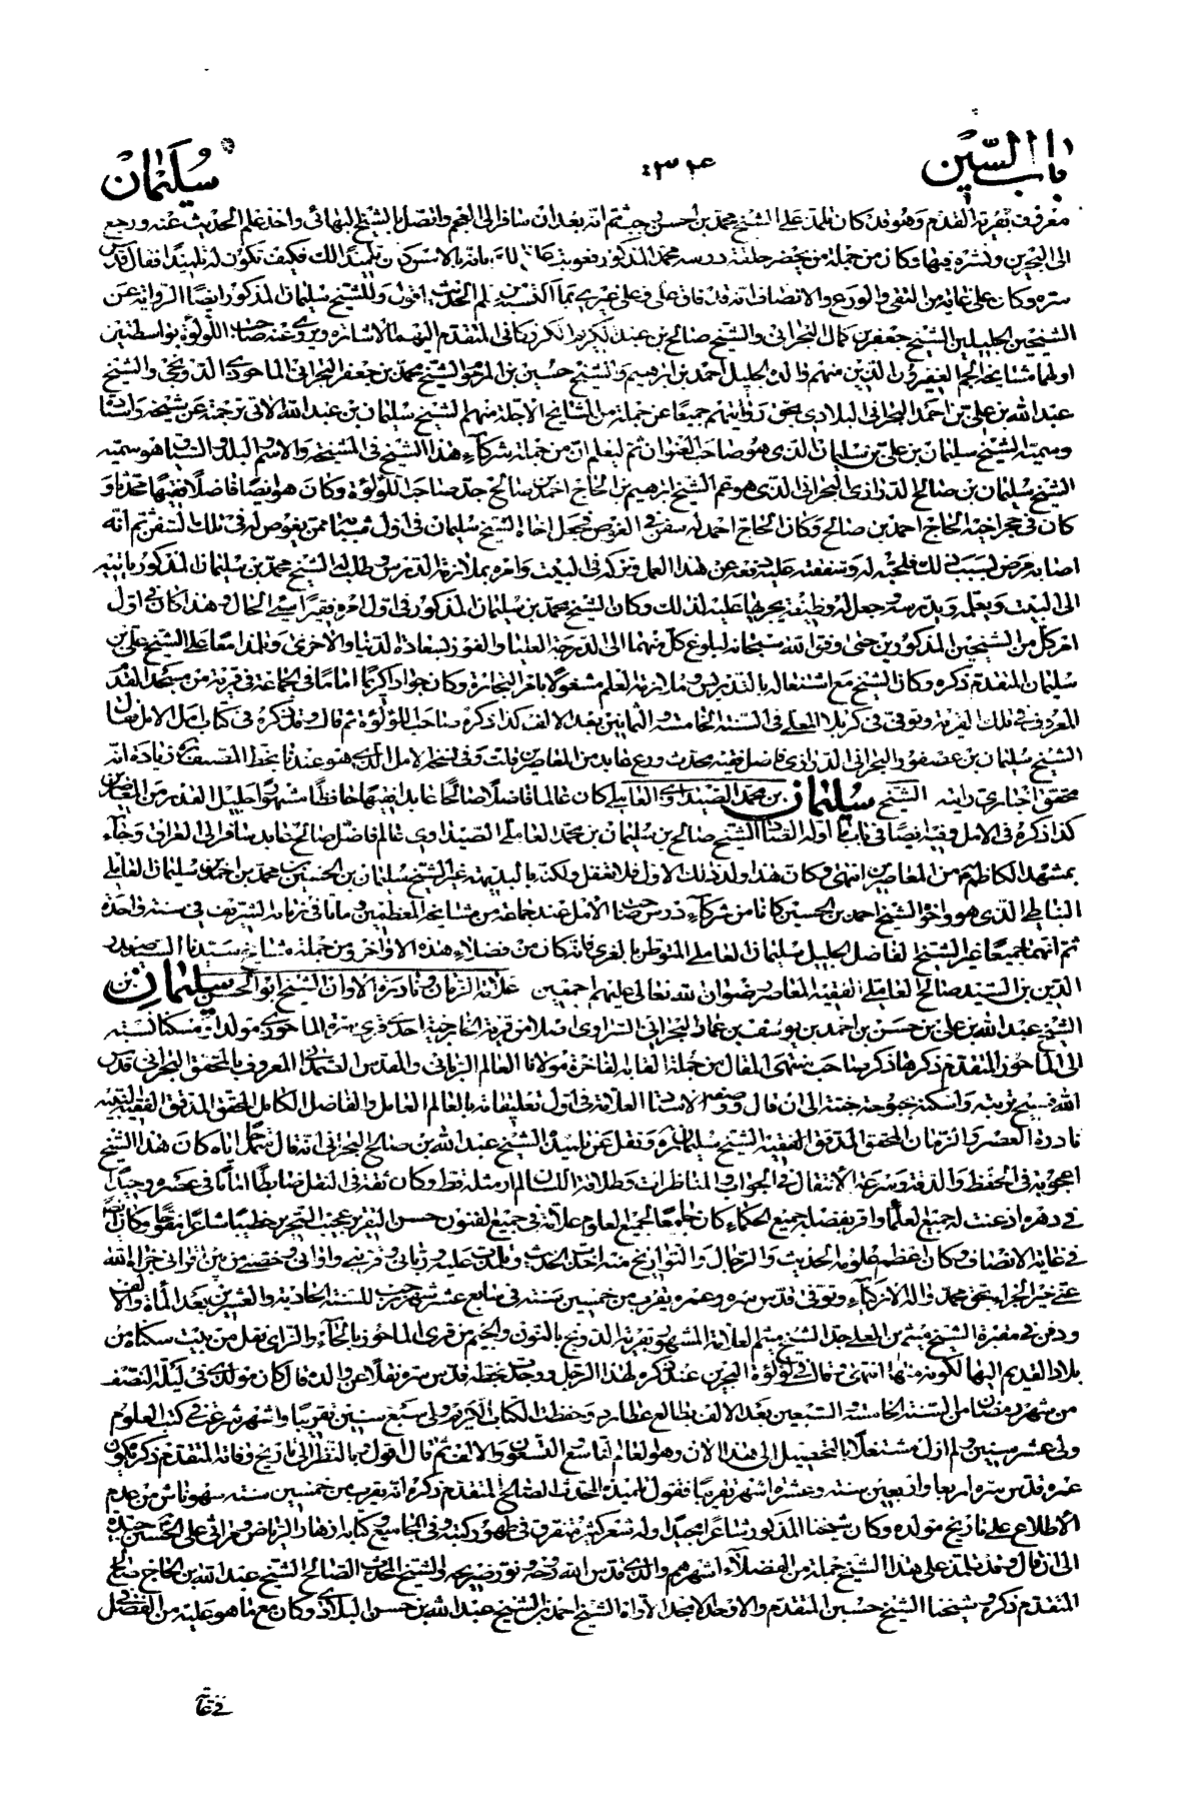 باب السّين
٣٢٤
سليمان
معروف بقرية القدم وهو قد كان تلمذ على الشيخ محمد بن حسن بن ثم انه بعد ان سافر الى العجم واتصل بالشيخ البهائي واخذ علم الحديث عنه ورجع
الى البحرين ونشره فيها وكان من جملة من يحضر حلقة درسه محمد المذكور بانه بالامس كان تلميذا لك فكيف تكون له تلميذا فقال قدس
سره وكان على غاية من التقى والورع والانصاف انه قد فاق علي وعلى غيري بما اكتسبه من علم الحديث اقول وللشيخ سليمان المذكور ايضا الرواية عن
الشيخين الجليلين الشيخ جعفر بن كمال البحراني والشيخ صالح بن عبد الكريم الكرزكاني المتقدم اليهما الاشارة ويروي عنه صاحب اللؤلؤة بواسطتين
اولهما مشايخه الجم الغفير الذين منهم والده الجليل احمد بن ابرهيم والشيخ حسين بن الشيخ محمد بن جعفر البحراني الماحوزي الدونجي والشيخ
عبد الله بن علي بن احمد البحراني البلادي بحق روايتهم جميعا عن جملة من المشايخ الاجلة منهم الشيخ سليمان بن عبد الله الاتي ترجمته عن شيخه واستاده
وسميه الشيخ سليمان بن علي بن سليمان الذي هو صاحب العنوان ثم ليعلم ان من جملة شركاء هذا الشيخ في المشيخة والاسم والبلد والنسب هو سميه
الشيخ سليمان بن صالح الدرازي البحراني الذي هو عم الشيخ ابرهيم بن الحاج احمد بن صالح جد صاحب اللؤلؤة وكان هو ايضا فاضلا فقيها محدثا و
كان في حجر اخيه الحاج احمد بن صالح وكان الحاج احمد له سفن في الغوص فجعل اخاه الشيخ سليمان في اول شبابه ممن يغوص له في تلك السفن ثم انه
اصابه مرض بسبب ذلك فلمحبته له وشفقته عليه رفعه عن هذا العمل فتركه في البيت وامره بملازمة الدرس وطلب له الشيخ محمد بن سليمان المذكور ياتيه
الى البيت ويعلمه ويدرسه وجعل له وظيفة يجريها عليه لذلك وكان الشيخ محمد بن سليمان المذكور في اول امره فقيرا سيئ الحال وهذا كان في اول
امر كل من الشيخين المذكورين حتى وفق الله سبحانه لبلوغ كل منهما الى الدرجة العليا والفوز بسعادة الدنيا والاخرى وتلمذا معا على الشيخ علي بن
سليمان المتقدم ذكره وكان الشيخ مع اشتغاله بالتدريس وملازمة العلم مشغولا بامر التجارة وكان جوادا كريما اماما في الجماعة في قريته من مسجد القدم
المعروف في تلك القرية وتوفي في كربلا المعلى في السنة الخامسة والثمانين بعد الالف كذا ذكره صاحب اللؤلؤة ثم قال وقد ذكره في كتاب امل الامل فقال
الشيخ سليمان بن عصفور البحراني الدرازي فاضل فقيه محدث ورع عابد من المعاصرين قلت وفي نسخة الامل الذي هو عندنا بخط المصنف زيادة انه
محقق اخباري رايته الشيخ سليمان بن محمد الصيداوي العاملي كان عالما فاضلا صالحا عابدا فقيها حافظا مشهورا جليل القدر من المعاصرين
كذا ذكره في الامل وفيه ايضا في باب ما اوله الصاد الشيخ صالح بن سليمان بن محمد العاملي الصيداوي عالم فاضل صالح عابد سافر الى العراق وجاور
بمشهد الكاظم من المعاصرين انتهى وكان هذا ولد ذلك الاول فلا تغفل ولكنه بالبديهة غير الشيخ سليمان بن الحسين بن محمد بن احمد بن سليمان العاملي
النباطي الذي هو واخوه الشيخ احمد بن الحسين كانا من شركاء درس صاحب الامل عند جماعة من مشايخه المعظمين وماتا في زمانه الشريف في سنة واحدة
ثم انهما جميعا غير الشيخ الفاضل الجليل سليمان العاملي المتوطن بالغري فانه كان من فضلاء هذه الاواخر ومن جملة مشايخ سيدنا السيد صدر
الدين بن السيد صالح العاملي الفقيه المعاصر رضوان الله تعالى عليهم اجمعين علامة الزمان ونادرة الاوان الشيخ ابو الحسن سليمان بن
الشيخ عبد الله بن علي بن حسن بن احمد بن يوسف بن عمار البحراني السراوي اصلا من قرية الخارجية احدى قرى سترة الماحوزي مولدا ومسكنا نسبة
الى الماحوز المتقدم ذكرها ذكر صاحب منتهى المقال من جملة القابه الفاخرة مولانا العالم الرباني والمقدس الصمداني المعروف بالمحقق البحراني قدس
الله فسيح تربته واسكنه بحبوحة جنته الى ان قال ووصفه الاستاد العلامة في اول تعليقاته بالعالم العامل والفاضل الكامل المحقق المدقق الفقيه النبيه
نادرة العصر والزمان المحقق المدقق الفقيه الشيخ سليمان ره ونقل عن تلميذه الشيخ عبد الله بن صالح البحراني انه قال في حقه اياه كان هذا الشيخ
اعجوبة في الحفظ والدقة وسرعة الانتقال في الجواب والمناظرات وطلاقة اللسان لم ار مثله قط وكان ثقة في النقل ضابطا اماما في عصره وحيدا
في دهره اذعنت له جميع العلماء واقر بفضله جميع الحكماء كان جامعا لجميع العلوم علامة في جميع الفنون حسن التقرير عجيب التحرير خطيبا شاعرا مفوها وكان ايضا
في غاية الانصاف وكان اعظم علومه الحديث والرجال والتواريخ منه اخذت الحديث وتلمذت عليه ورباني وقربني واواني واختصني من بين اقراني جزاه الله
عني خير الجزاء بحق محمد واله الازكياء وتوفي قدس سره وعمره يقرب من خمسين سنة في سابع عشر شهر رجب للسنة الحادية والعشرين بعد المأة والالف
ودفن في مقبرة الشيخ ميثم بن المعلى جد الشيخ ميثم العلامة المشهور بقرية الدونج بالنون والجيم من قرى الماحوز بالحاء والزاي نقل من بيت سكناه من
بلاد القديم اليها لكونه منها انتهى وقال في لؤلؤة البحرين عند ذكره لهذا الرجل ووجدت بخطه قدس سره نقلا عن والده قال كان مولدي في ليلة النصف
من شهر رمضان من السنة الخامسة والسبعين بعد الالف بطالع عطارد وحفظت الكتاب الكريم ولي سبع سنين تقريبا واشهر وشرعت في كتب العلوم
ولي عشر سنين ولم ازل مشتغلا بالتحصيل الى هذا الان وهو العام التاسع والتسعون والالف ثم قال اقول بالنظر الى تاريخ وفاته المتقدم ذكره يكون
عمره قدس سره اربعا واربعين سنة وعشرة اشهر تقريبا فقول تلميذه المحدث الصالح المتقدم ذكره انه يقرب من خمسين سنة سهو ناش من عدم
الاطلاع على تاريخ مولده وكان شيخنا المذكور شاعرا مجيدا وله شعر كثير متفرق في ظهور كتبه وفي المجاميع وكتابه ازهار الرياض ومراثي على الحسين جيدة
الى ان قال وقد تلمذ على هذا الشيخ جملة من الفضلاء اشهرهم والدي قدس الله روحه ونور ضريحه والشيخ المحدث الصالح الشيخ عبد الله بن الحاج صالح
المتقدم ذكره وشيخنا الشيخ حسين المتقدم والاوحد الامجد الاواه الشيخ احمد بن الشيخ عبد الله بن حسن البلادي وكان مع ما هو عليه من الفضل
في غاية